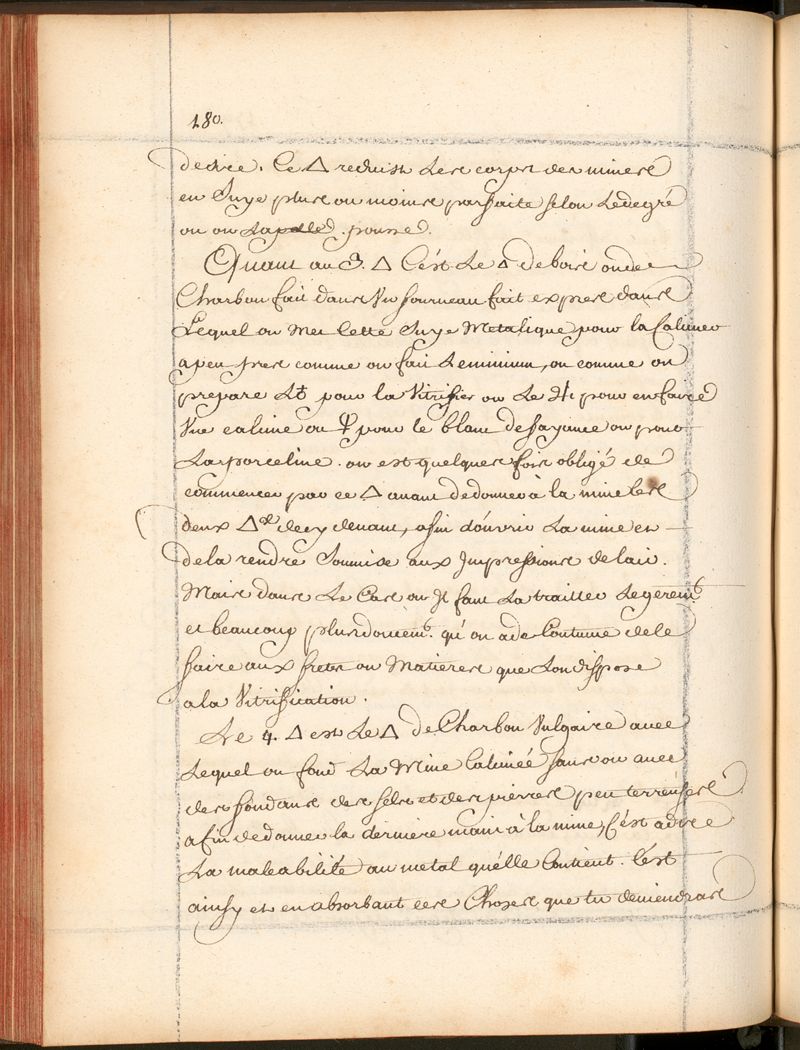 180.
dedire. Ce △ reduist Les corps des mines
en Suye plus ou moins parfaite selon Ledegré
ou on pousse.
Quant au 3. △ C'est Le △ de bois ou de
Charbon fait dans Un fourneau fait expres dans
Lequel on Met Cette Suye Metalique pour la Calciner
apeu pres comme on fait Leminium, ou comme on
prepare L♄ pour la Vitrifier ou Le ♃ pour en faire
Vne calcine ou pour le blanc de fayance ou pour
La porceline. on est quelques fois obligé de
commencer par ce △ auant dedonner à la mine les
deux △ decy deuant, afin d'ouvrir La mine et
dela rendre Soumise aux Impressions de lair.
Mais dans Le Cas ou Jl faut La traitter Legerem.t
et beaucoup plus doucem.t qu'on a de Coutume dele
faire aux frites ou Matieres que Lon dispose
a la Vitrification.
Le 4. △ est Le △ de Charbon Vulgaire auec
Lequel on fond La Mine Calcinéé sans ou auec
des fondans des sels et des pierres peu terreuses
afin dedonner la derniere main à la mine, C'est adire
La maleabilité au metal qu'elle Contient. C'est
ainsy et en absorbant ces Choses que tu deuiendras